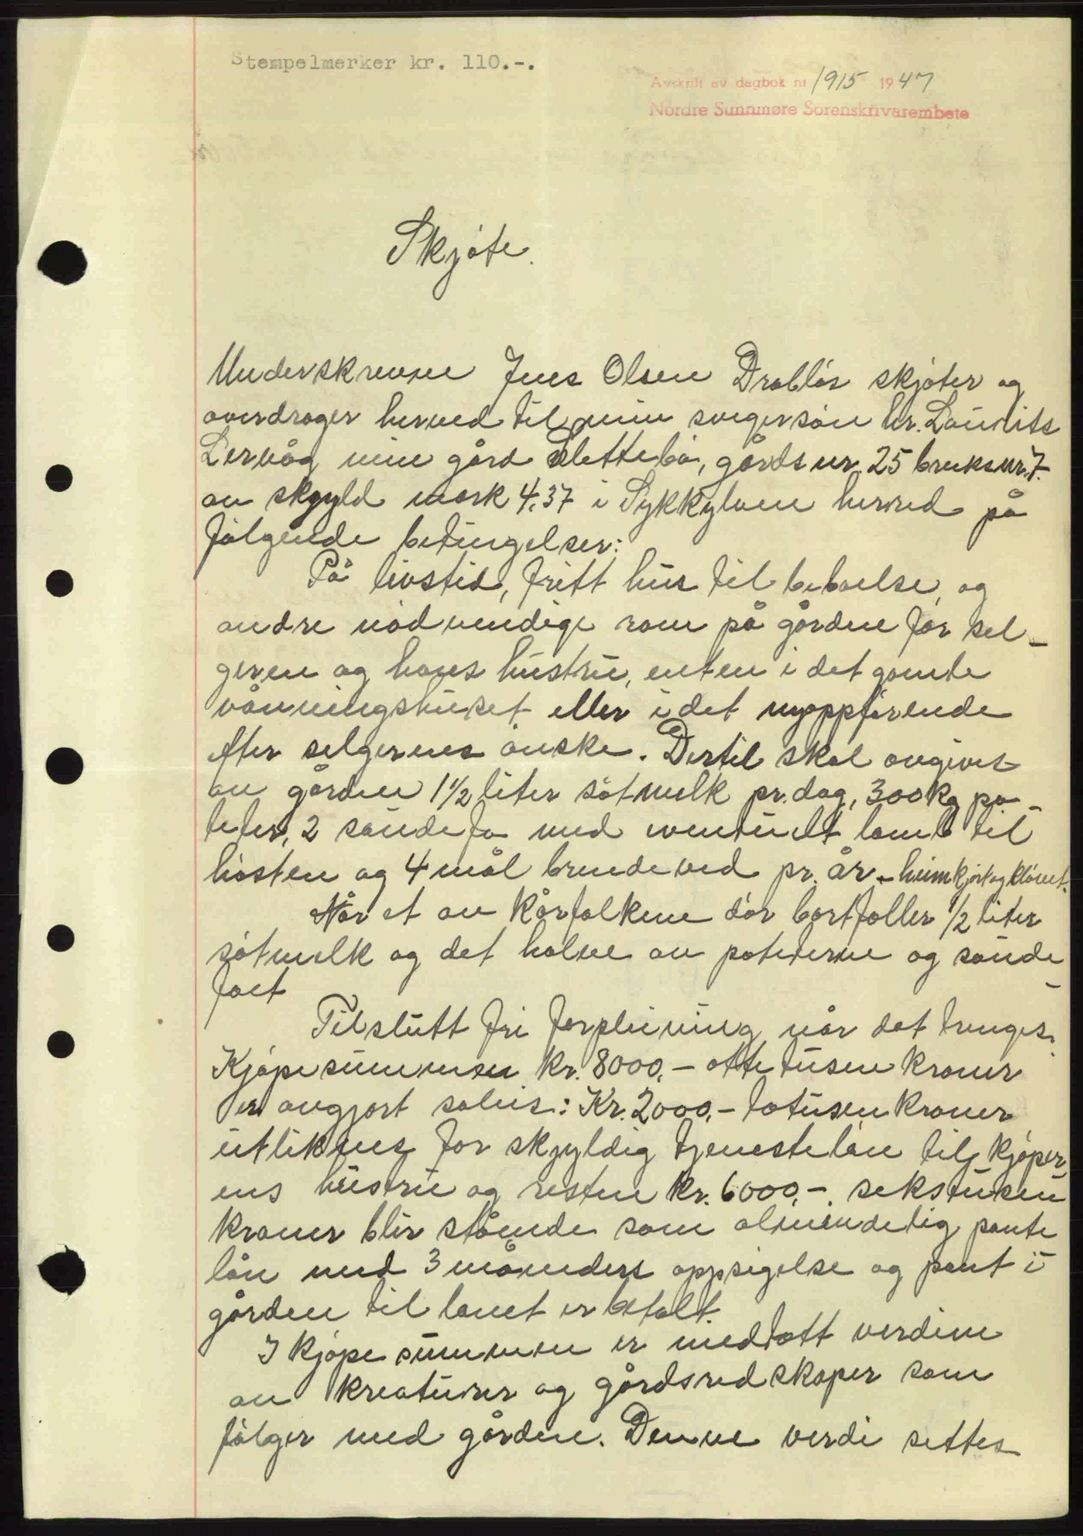 Stempelmerker kr. 110.-.
Avskrift av dagbok nr 1915 1947
Nordre Sunnmøre Sorenskrivarembete
Skjøte.
Underskrevne Jens Olsen Drabløs skjøter og
overdrager herved til min svigersøn hr. Laurits
Lervåg min gård Slettebø, gårds nr. 25 bruksnr. 7.
av skyld mark 4.37 i Sykkylven herred på
følgende betingelser:
På livstid, fritt hus til beboelse, og
andre nødvendige rom på gården for sel-
geren og hans hustru, enten i det gamle
våningshuset eller i det nyoppførende
efter selgerens ønske. Dertil skal avgives
av gården 1½ liter søtmelk pr. dag, 300 kg po-
teter, 2 saude fø med eventuelt lam til
høsten og 4 mål brendeved pr. år - heimkjørt og kløvet.
Når et av kårfolkene dør bortfaller 1/2 liter
søtmelk og det halve av poteterne og saude-
foet
Tilslutt fri forpleining når det trenges.
Kjøpesummen kr. 8000.- otte tusen kroner
er avgjort salees: Kr. 2000.- totusen kroner
utliknes for skyldig tjenesteløn til kjøper-
ens hustru og resten kr. 6000.-. sekstusen
kroner blir stående som almindelig pante
lån med 3 måneders oppsigelse og pant i
gården til lånet er betalt.
I kjøpesummen er medtatt verdien
av kreaturer og gårdsredskaper som
følger med gården. Denne verdi settes